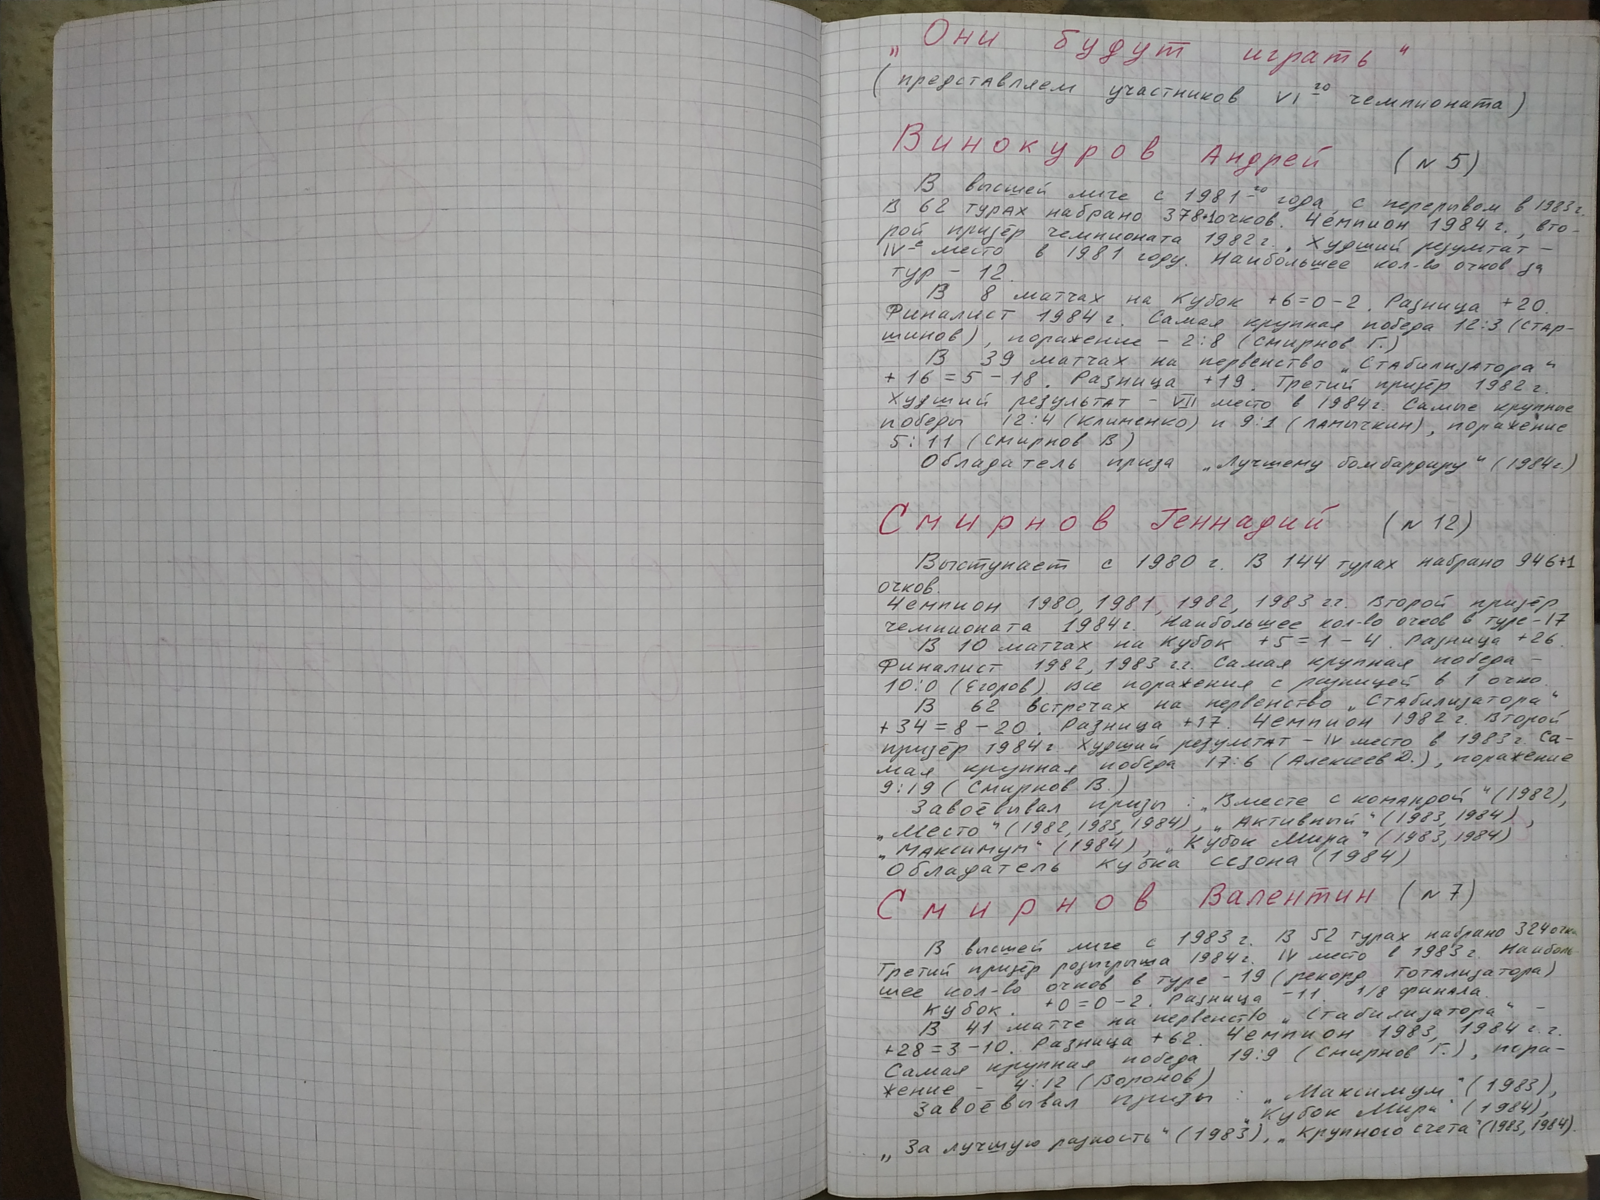 „Они будут играть“
(представляем участников VI го чемпионата)
Винокуров Андрей (N 5)
В высшей лиге с 1981 го года, с перерывом в 1983 г.
В 62 турах набрано 378+1 очков. Чемпион 1984 г., вто-
рой призёр чемпионата 1982 г. Худший результат –
IV е место в 1981 году. Наибольшее кол-во очков за
тур – 12.
В 8 матчах на Кубок +6=0–2. Разница +20.
Финалист 1984 г. Самая крупная победа 12:3 (Стар-
шинов), поражение – 2:8 (Смирнов Г.)
В 39 матчах на первенство „Стабилизатора“
+16=5–18. Разница +19. Третий призёр 1982 г.
Худший результат – VII место в 1984 г. Самые крупные
победы 12:4 (Клименко) и 9:1 (Ламычкин), поражение
5:11 (Смирнов В)
Обладатель приза „Лучшему бомбардиру“ (1984 г.)
Смирнов Геннадий (N 12)
Выступает с 1980 г. В 144 турах набрано 946+1
очков.
Чемпион 1980, 1981, 1982, 1983 гг. Второй призёр
чемпионата 1984 г. Наибольшее кол-во очков в туре – 17
В 10 матчах на Кубок +5=1–4. Разница +26.
Финалист 1982, 1983 гг. Самая крупная победа –
10:0 (Егоров) Все поражения с разницей в 1 очко.
В 62 встречах на первенство „Стабилизатора“
+34=8–20. Разница +17. Чемпион 1982 г. Второй
призёр 1984 г. Худший результат – IV место в 1983 г. Са-
мая крупная победа 17:6 (Алексеев Д.), поражение
9:19 (Смирнов В.)
Завоёвывал призы: „Вместе с командой“ (1982),
„Место“ (1982, 1983, 1984), „Активный“ (1983, 1984),
„Максимум“ (1984), „Кубок Мира“ (1983, 1984)
Обладатель Кубка сезона (1984)
Смирнов Валентин (N 7)
В высшей лиге с 1983 г. В 52 турах набрано 324 очка
Третий призёр розыгрыша 1984 г. IV место в 1983 г. Наиболь
шее кол-во очков в туре – 19 (рекорд Тотализатора)
Кубок. +0=0–2. Разница –11. 1/8 финала.
В 41 матче на первенство „Стабилизатора“ –
+28=3–10. Разница +62. Чемпион 1983, 1984 г.г.
Самая крупная победа 19:9 (Смирнов Г.), пора-
жение – 4:12 (Воронов)
Завоёвывал призы: „Максимум“ (1983),
„Кубок Мира“ (1984),
„За лучшую разность“ (1983), „Крупного счета“ (1983, 1984).